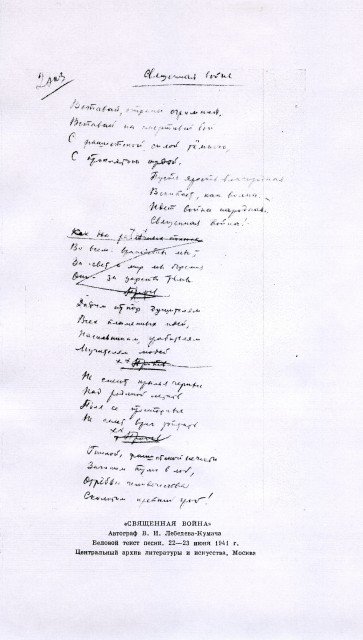 2 экз
Священная война
Вставай, страна огромная,
Вставай на смертный бой
С фашистской силой тёмною,
С проклятою ордой.
Пусть ярость благородная
Вскипает, как волна.
Идет война народная,
Священная война!
Как два
Во всем враждебны мы;
За свет и мир мы боремся
Они за царство тьмы
Припев
Дадим отпор душителям
Всех пламенных идей,
Насильникам, грабителям
Мучителям людей
Припев
Не смеют крылья черные
Над родиной летать
Поля ее просторные
Не смеет враг топтать
Припев
Гнилой фашистской нечисти
Загоним пулю в лоб,
Отребью человечества
Сколотим крепкий гроб!
«СВЯЩЕННАЯ ВОЙНА»
Автограф В. И. Лебедева-Кумача
Беловой текст песни. 22—23 июня 1941 г.
Центральный архив литературы и искусства, Москва